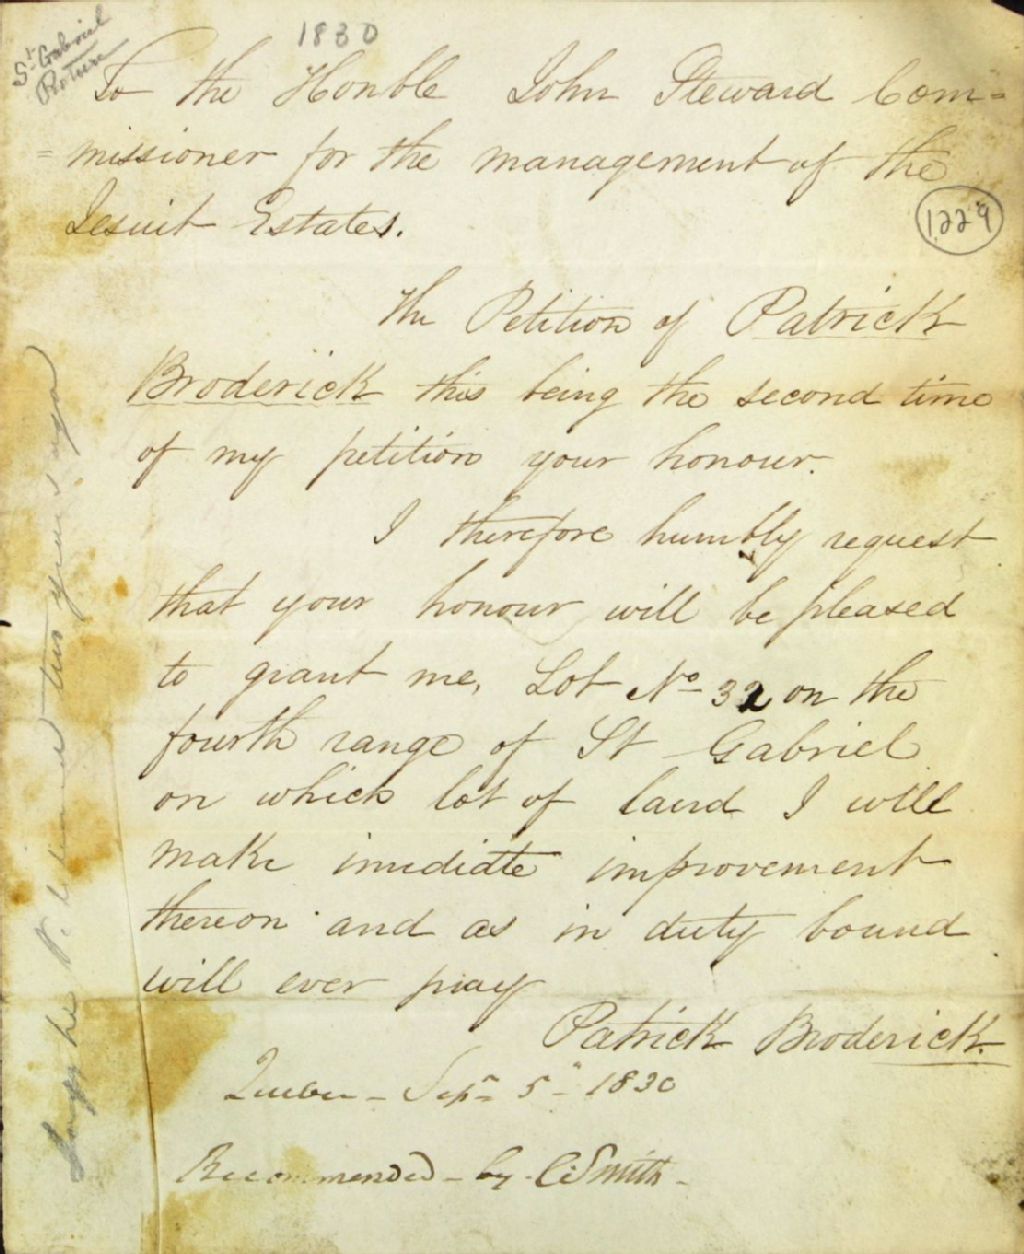 1830
St Gabriel
To the Honble John Steward Com=
=missioner for the management of the
Jesuit Estates.
1229
The Petition of Patrick
Broderick this being the second time
of my petition your honour.
I therefore humbly request
that your honour will be pleased
to grant me, Lot No 32 on the
fourth range of St Gabriel
on which lot of land I will
make imidiate improvement
thereon and as in duty bound
will ever pray
Patrick Broderick.
Quebec - Sepr 5th 1830
Recommended - by - C Smith -
Says he petitioned two years ago